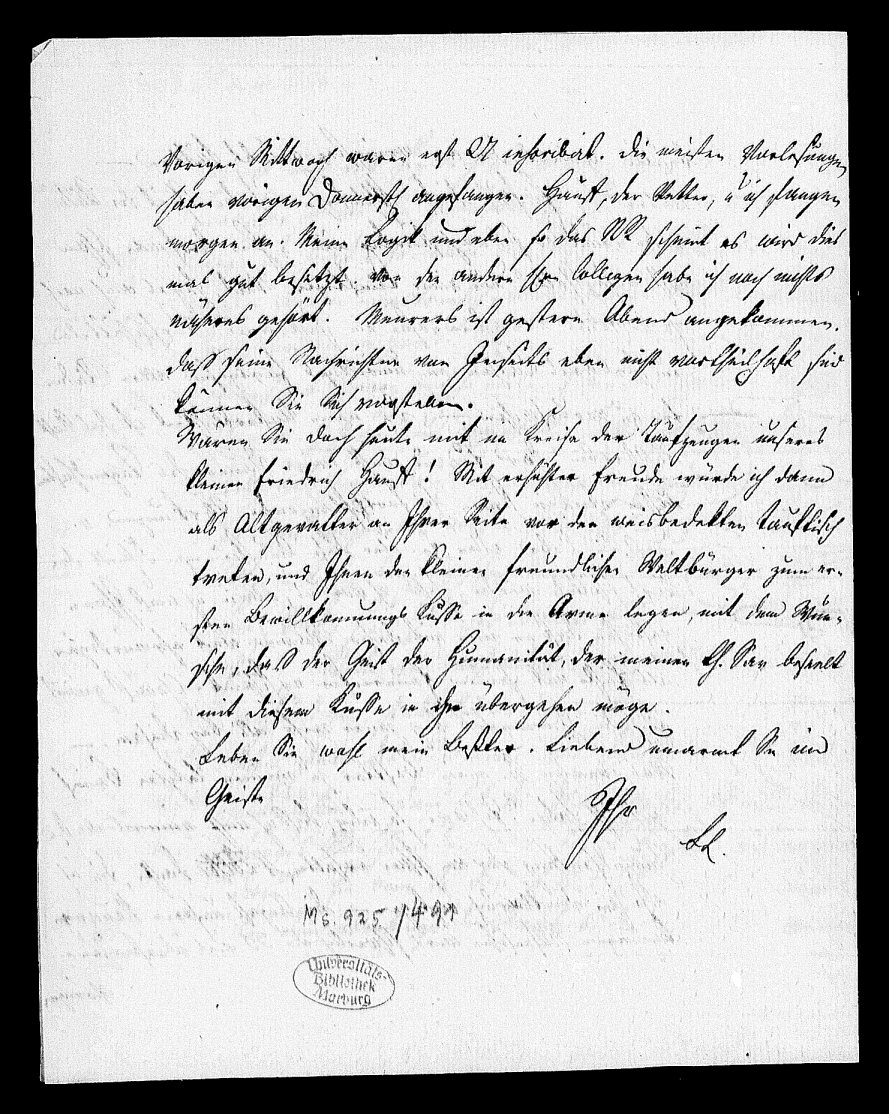 Vorigen Mittwoch waren erst 21 inscribirt. Die meisten Vorlesungen
haben vorigen Donnerst. angefangen. Hauff, der Vetter, u ich fangen
morgen an. Meine Logik und eben so das NR scheint es wird dies
mal gut besetzt, von den andern Hrn Collegen habe ich noch nichts
näheres gehört. Meurers ist gestern Abend angekommen.
daß seine Nachrichten von Jenseits eben nicht vortheilhaft sind
können Sie Sich vorstellen.
Waren Sie doch heute mit im Kreise der Taufzeugen unseres
kleinen Friedrich Hauff! Mit erhöhter Freude würde ich dann
als Altgevatter an Ihrer Seite vor den weisbedekten Tauftisch
treten, und Ihnen den kleinen freundlichen Weltbürger zum er-
sten Bewillkommungs Kusse in die Arme legen, mit dem Wun-
sche, daß der Geist der Humanität, der meinen Th. Sav beseelt
mit diesem Kusse in ihn übergehen möge.
Leben Sie wohl mein Beßter. Liebend umarmt Sie im
Geiste
Ihr
Ms. 925/497
Universitäts-
Bibliothek
Marburg